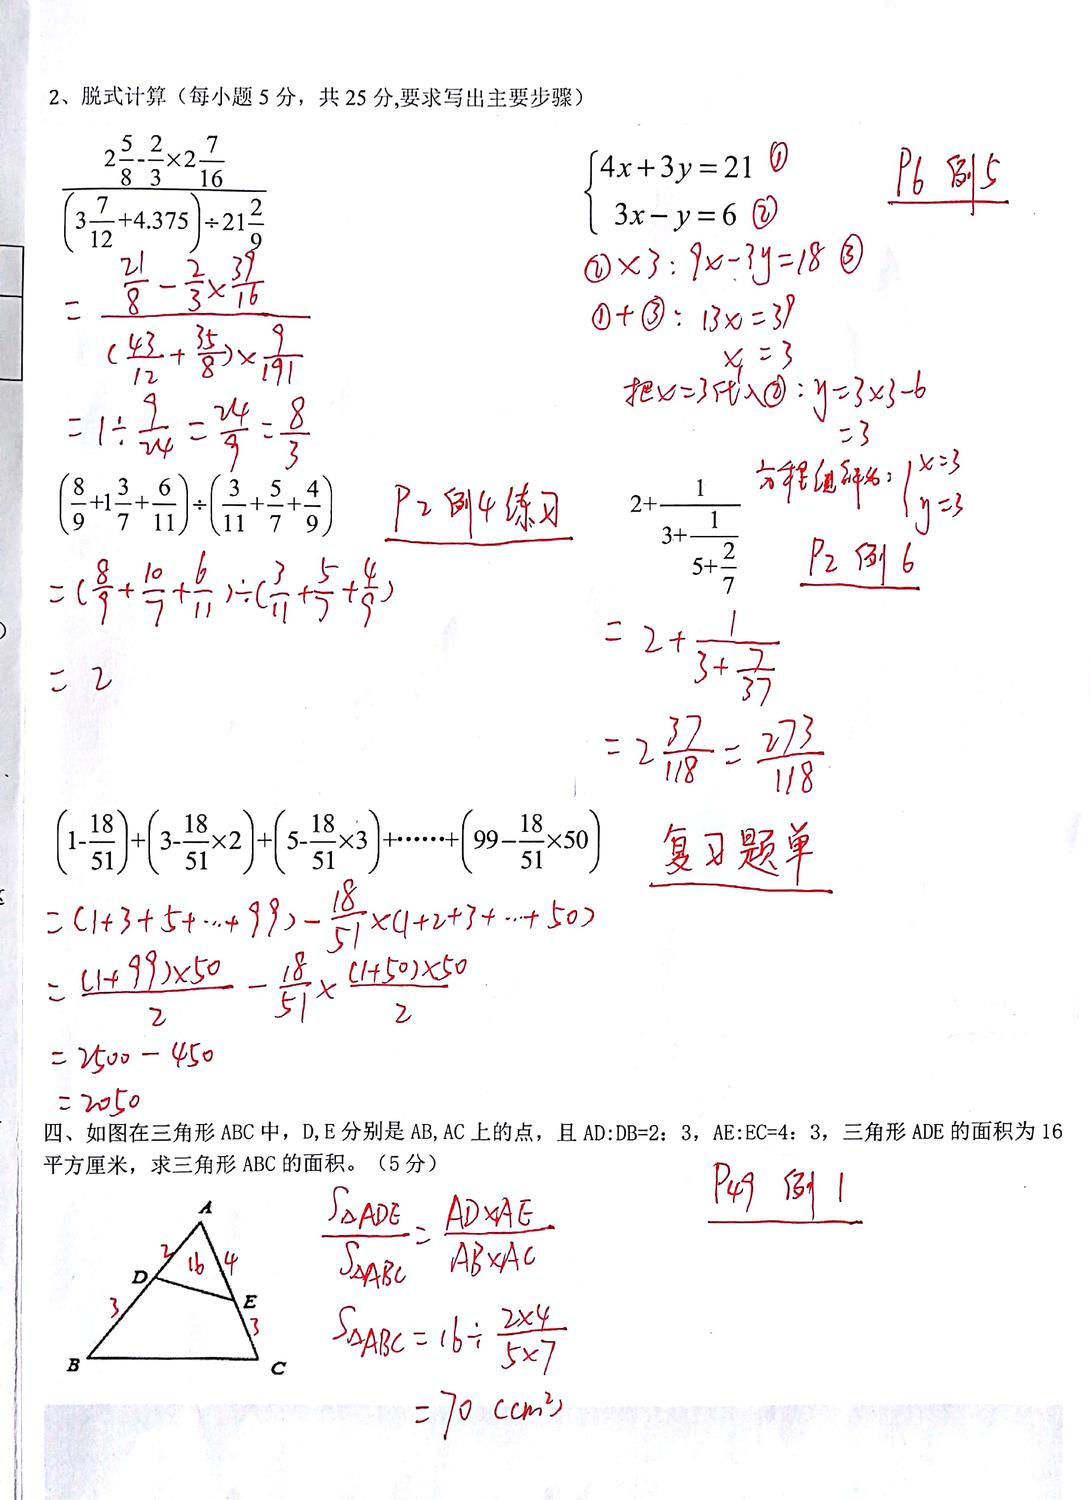 2、脱式计算（每小题5分，共25分,要求写出主要步骤）
(2 5/8 - 2/3 × 2 7/16) / ((3 7/12 + 4.375) ÷ 21 2/9)
= (21/8 - 2/3 × 39/16) / ((43/12 + 35/8) × 9/191)
= 1 ÷ 9/24 = 24/9 = 8/3
{4x+3y=21 ①
3x-y=6 ②
P6 例5
②×3: 9x-3y=18 ③
①+③: 13x=39
x=3
把x=3代入②: y=3×3-6
=3
方程组解为: {x=3
y=3
(8/9 + 1 3/7 + 6/11) ÷ (3/11 + 5/7 + 4/9)
P2 例4 练习
= (8/9 + 10/7 + 6/11) ÷ (3/11 + 5/7 + 4/9)
= 2
2+1/(3+1/(5+2/7))
P2 例6
= 2+1/(3+7/37)
= 2 37/118 = 273/118
(1-18/51)+(3-18/51×2)+(5-18/51×3)+……+(99-18/51×50)
复习题单
= (1+3+5+…+99) - 18/51 ×(1+2+3+…+50)
= (1+99)×50/2 - 18/51 × (1+50)×50/2
= 2500 - 450
= 2050
四、如图在三角形ABC中，D,E分别是AB,AC上的点，且AD:DB=2：3，AE:EC=4：3，三角形ADE的面积为16
平方厘米，求三角形ABC的面积。（5分）
P49 例1
A
2 16 4
D
E
3
3
B
C
S△ADE/S△ABC = AD×AE/AB×AC
S△ABC = 16 ÷ 2×4/5×7
= 70 (cm²)